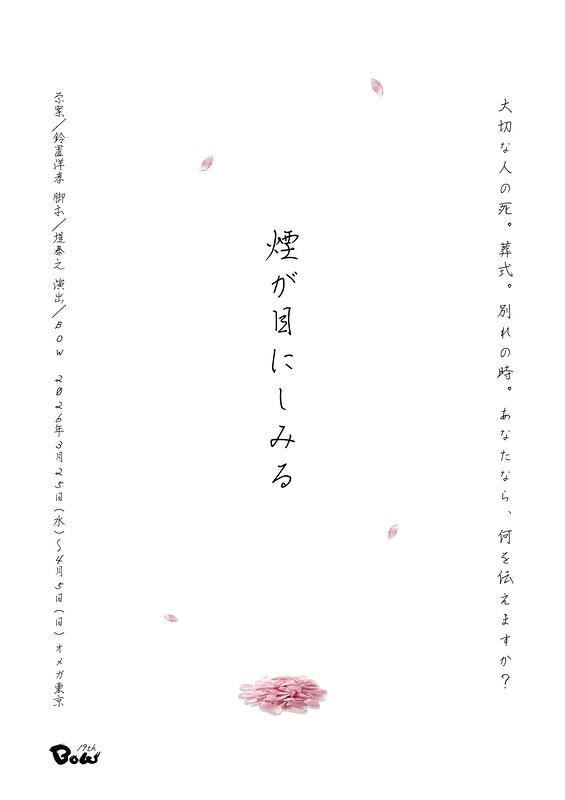 大切な人の死。葬式。別れの時。あなたなら、何を伝えますか？
煙が目にしみる
原案／鈴置洋孝 脚本／堤泰之 演出／BOW 2026年3月25日（水）～4月5日（日）オメガ東京
19th
BOW